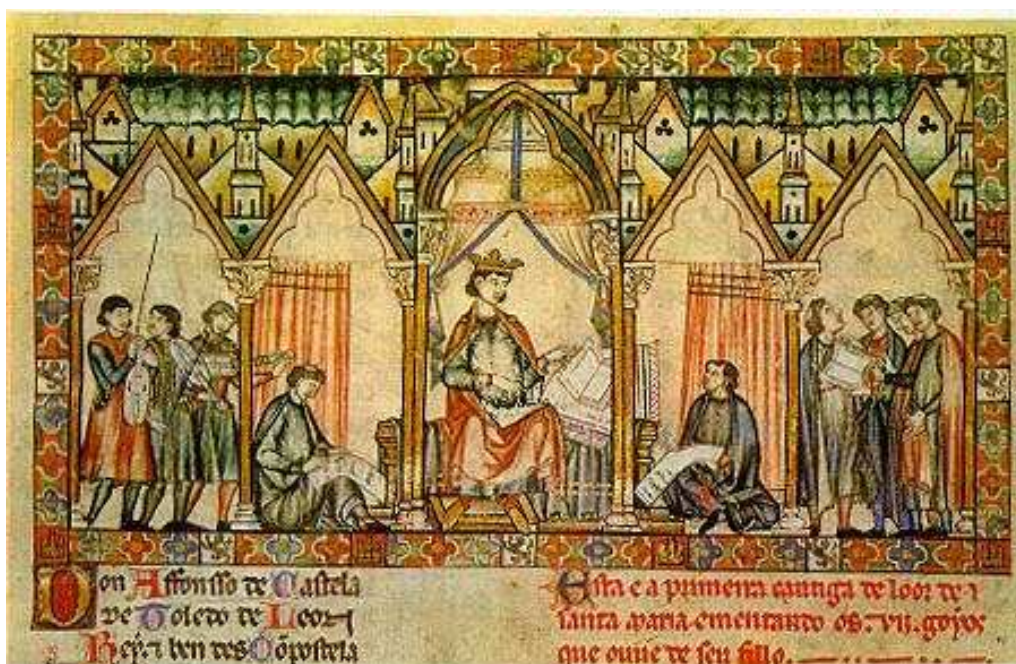 Don Affonsso de Castela
de Toledo de Leon
Rey ben des Cõpostela
Esta e a primeira cantiga de loor de
santa maria ementando os .vii. goyos
que ouue de seu fillo.